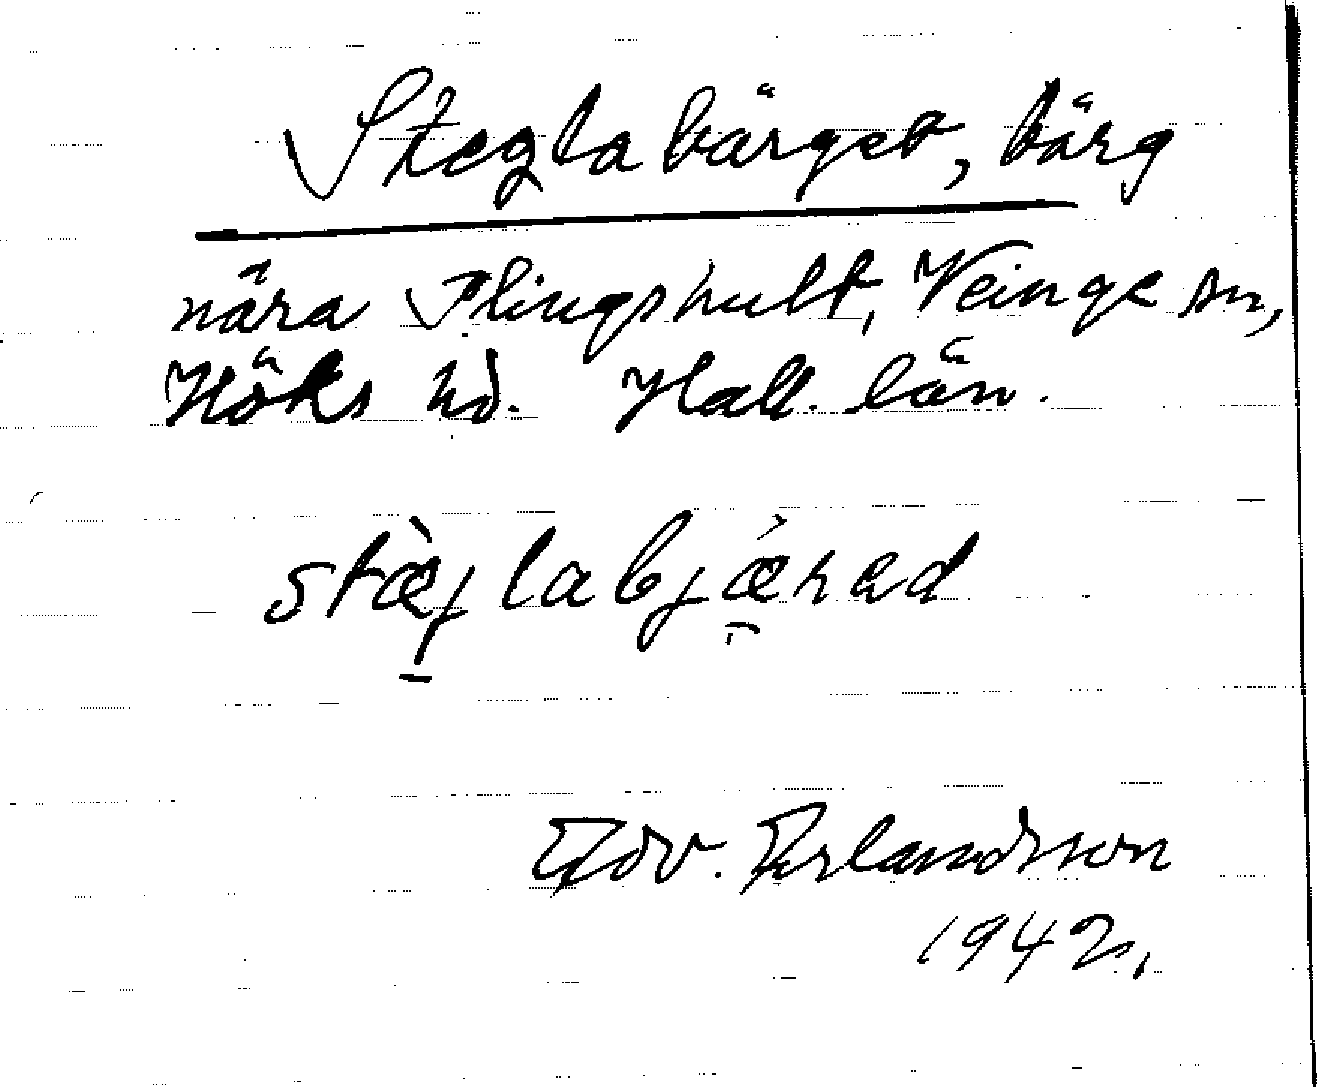 Steglabärget, bärg
nära Plingshult, Veinge sn,
Höks hd. Hall. län.
stæ̀jlabjǽrad
Edv. Erlandsson
1942.